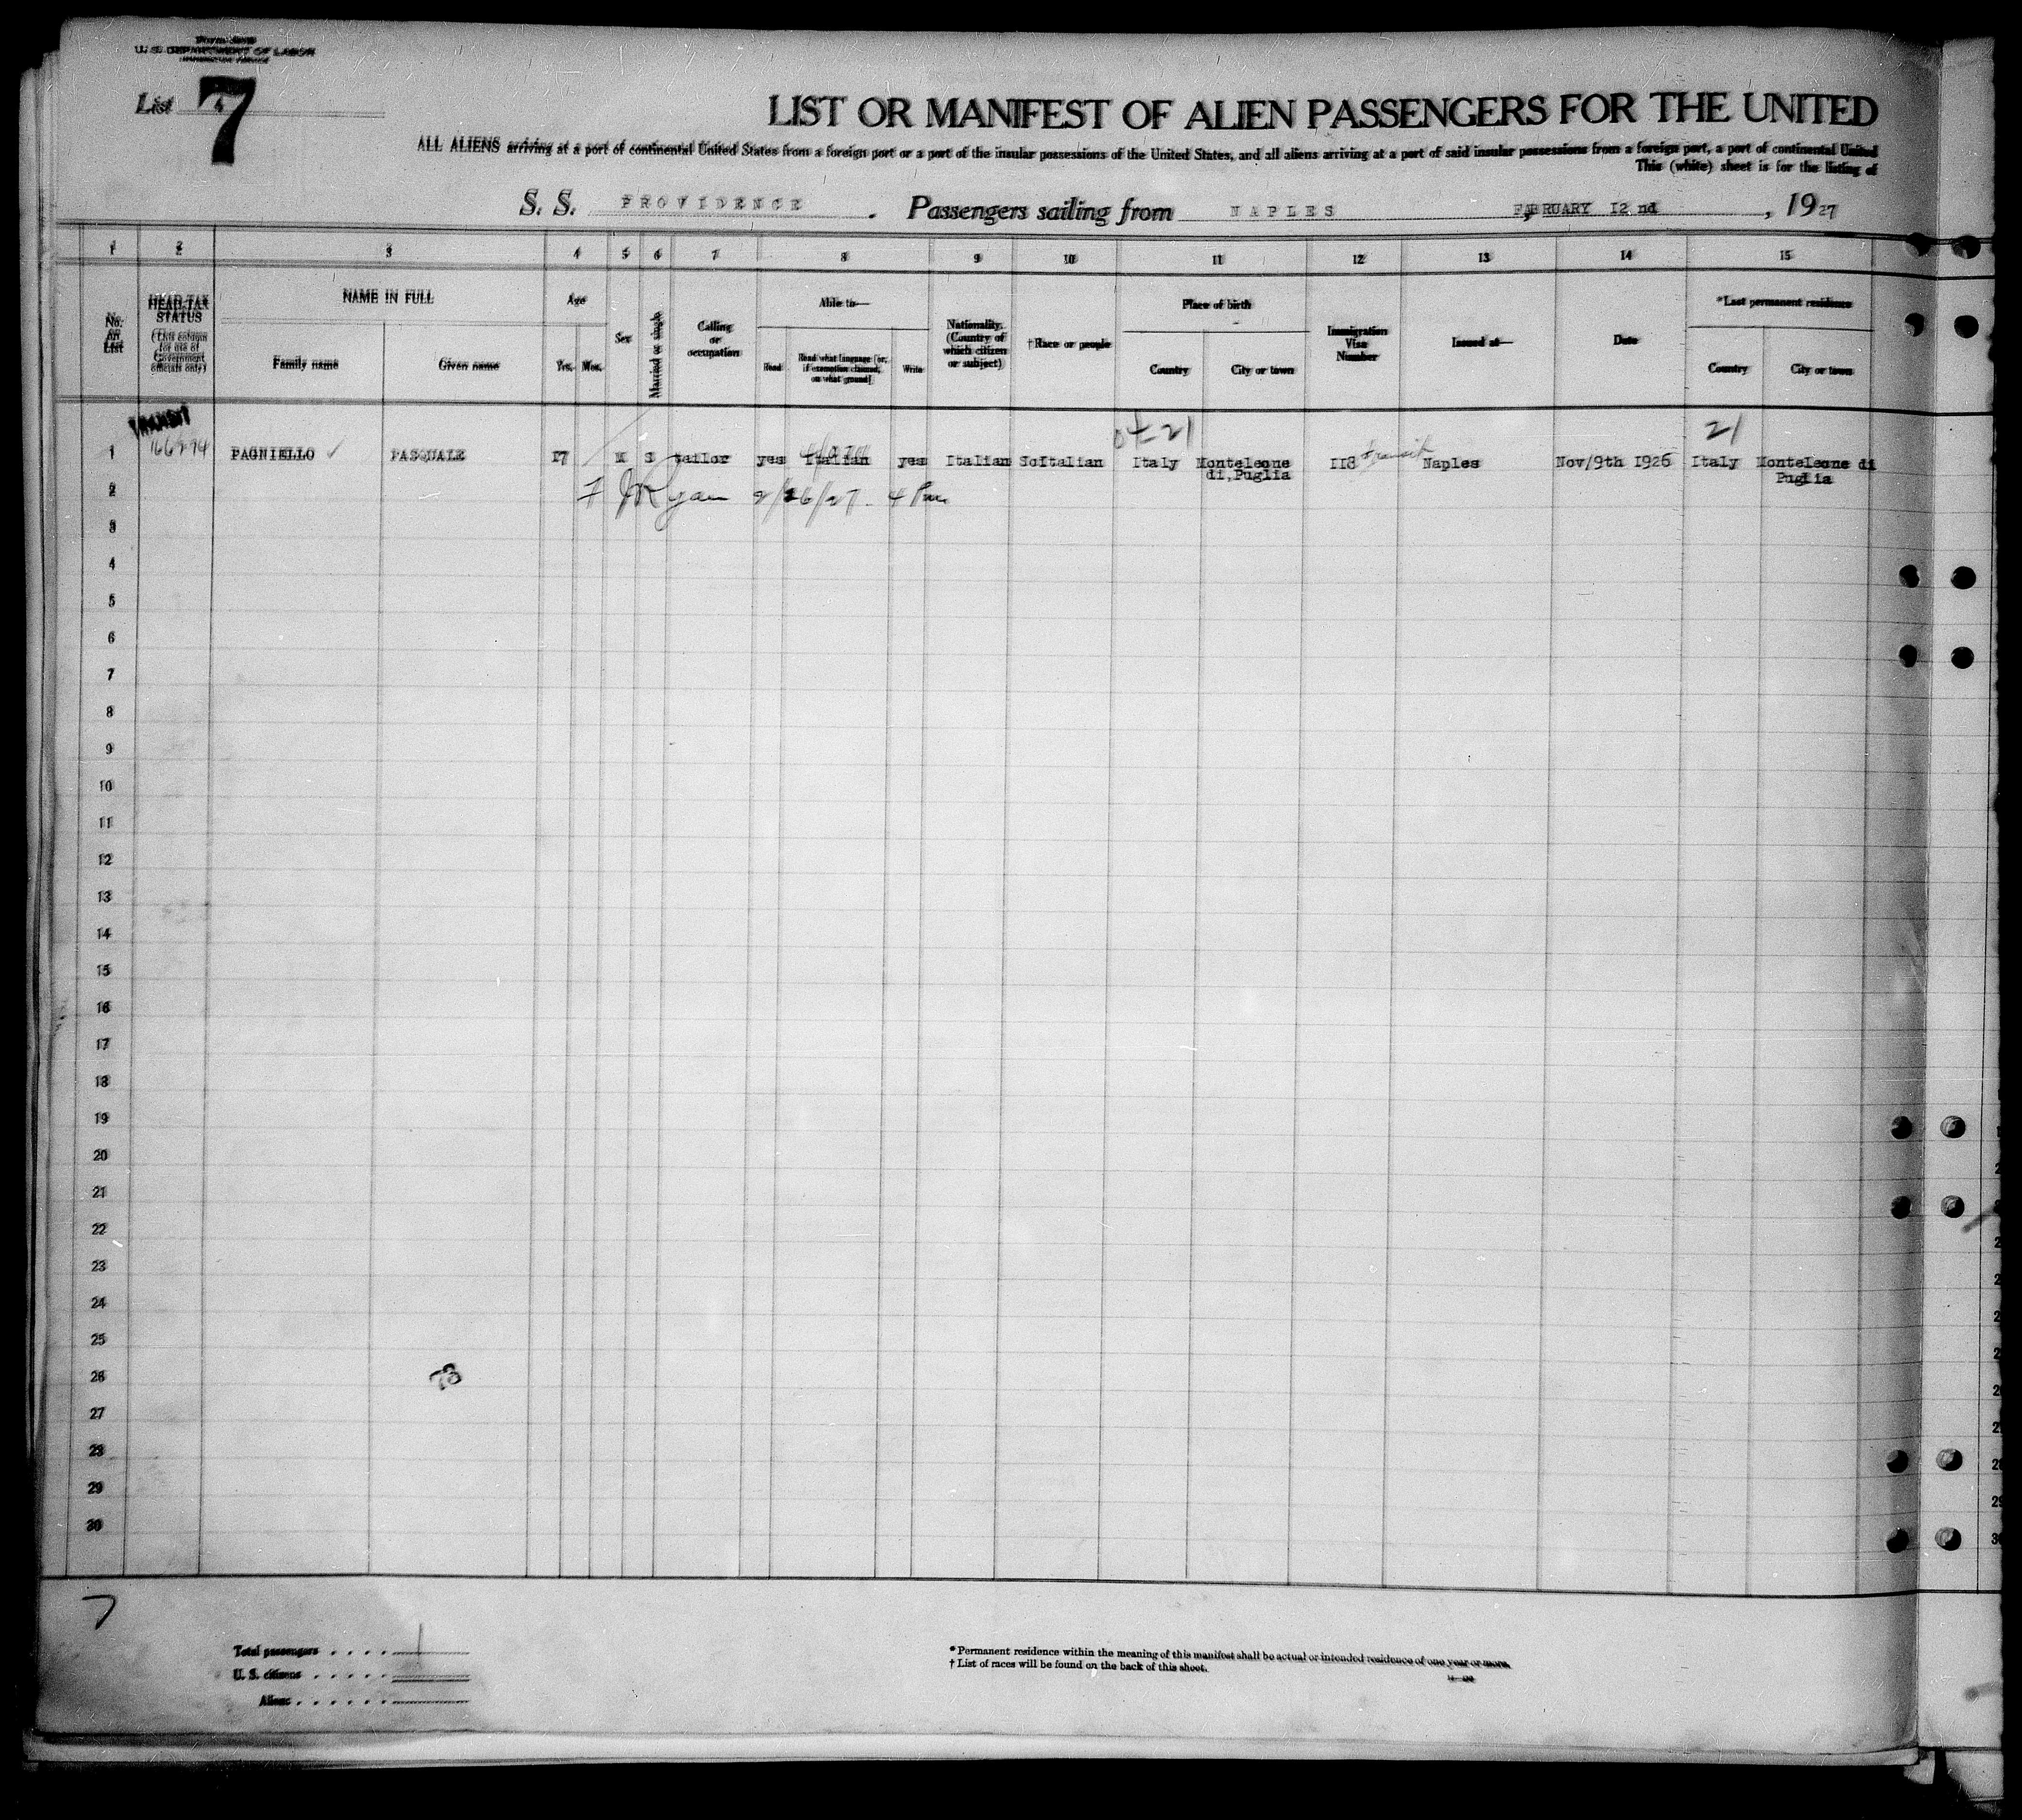 U. S. DEPARTMENT OF LABOR
List 4
7
LIST OR MANIFEST OF ALIEN PASSENGERS FOR THE UNITED
ALL ALIENS arriving at a port of continental United States from a foreign port or a port of the insular possessions of the United States, and all aliens arriving at a port of said insular possessions from a foreign port, a port of continental United
This (white) sheet is for the listing of
S. S. PROVIDENCE. Passengers sailing from NAPLES, FABRUARY I2 nd, 1927
1 2 3 4 5 6 7 8 9 10 11 12 13 14 15
No. on List
HEAD-TAX STATUS
(This column for use of Government officials only)
NAME IN FULL
Family name
Given name
Age
Yrs. Mos.
Sex
Married or single
Calling or occupation
Able to—
Read
Read what language [or, if exemption claimed, on what ground]
Write
Nationality. (Country of which citizen or subject)
†Race or people
Place of birth
Country
City or town
Immigration Visa Number
Issued at—
Date
*Last permanent residence
Country
City or town
TRANSIT
04-21
21
1 166294 PAGNIELLO ✓ PASQUALE I7 M S tailor yes Italian yes Italian SoItalian Italy Monteleone di,Puglia II8 transit Naples Nov/9th I926 Italy Monteleone di Puglia
2 JRyan 2/26/27 - 4 Pm
3
4
5
6
7
8
9
10
11
12
13
14
15
16
17
18
19
20
21
22
23
24
25
26
78
27
28
29
30
7
Total passengers . . . . 1
U. S. citizens . . . . .
Aliens . . . . . .
* Permanent residence within the meaning of this manifest shall be actual or intended residence of one year or more.
† List of races will be found on the back of this sheet.